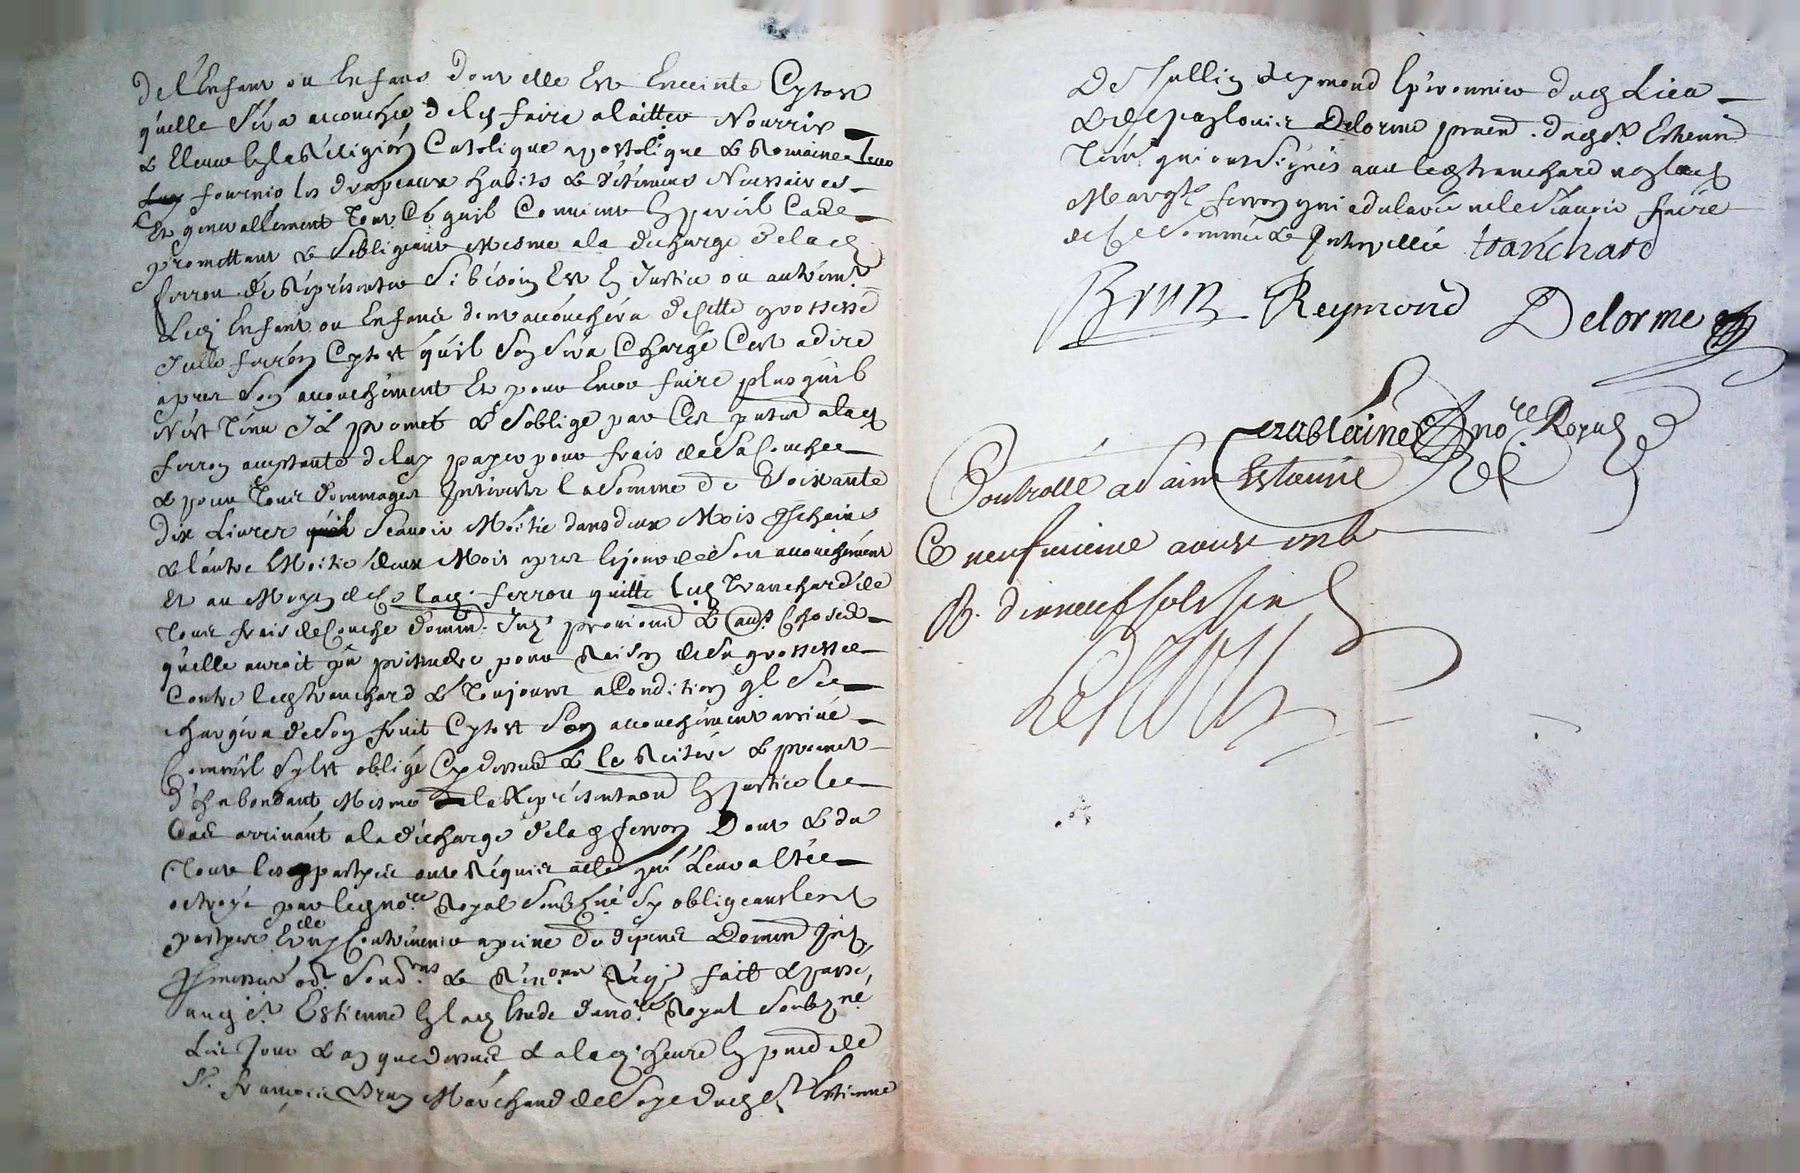 de l'Enfant ou Enfans dont elle Est Enceinte Cytost
quelle sera accouchée de les faire alaitter Nourrir
& Elever En la Religion Catolique apostolique & Romaine leur
fournir les drapeaux habits & vétemens Necessaires
Et generallement tout Ce quil Convient En pareil Cas
promettant & sobligeant Mesme a la decharge de lad
ferron de Répresenter Si bésoin Est En Justice ou autremt
Led Enfant ou Enfans dont accouchera de Cette grossesse
Jcelle ferron Cytost quil sen sera Chargé Cest adire
apres Son accouchement Et pour Encor faire plus quil
N'est Tenu Il promet & soblige par Ces putes a lad
ferron acceptante de luy payer pour frais de Sa Couche
& pour Tous dommages Interests la Somme de Soixante
dix Livres Scavoir Moitié dans deux Mois prochains
& lautre Moitié deux Mois apres le jour de Son accouchement
Et au Moyen de Ce lad. ferron quitte led Tranchard de
Tous frais de Couche domm. Int provisions & autres Choses
quelle auroit pu pretendre pour Raison de Sa grossesse
Contre led Tranchard & Toujours a Condition ql Se
chargera de Son fruit Cytost Son accouchement arrivé
Comme il sy Est obligé Cy dessus & le Reitére & promet
d'habondant Mesme la Répresentaon En Justice le
Cas arrivant a la décharge de la d ferron Dont & du
Tout les parties ont Réquis acte qui leur a Esté
octroyé par led nore Royal Soubsné Sy obligeant les
parties dy Contrevenir a peine de dépens Domm Int
promesses od. Soums & Renons Réq. fait & passé
aud St. Estienne En lad Etude du nore Royal Soubsné
Les Jour & an que dessus & a lad. heure En pnce de
Sr. françois Brun Marchand de Soye dud St Estienne
De Jullien Reymond Eperonnier dud Lieu
& de Delorme praen. dud St. Estienne
Tem. qui ont Signés avec led tranchard Non lad
Margte ferron qui a declaré ne le Scavoir faire
de Ce Sommée & Interpellée tranchard
Brun Reymond Delorme
nore Royal
Controllé a Saint Estienne
Ce neufvieme aoust
R. dixneuf sols six d